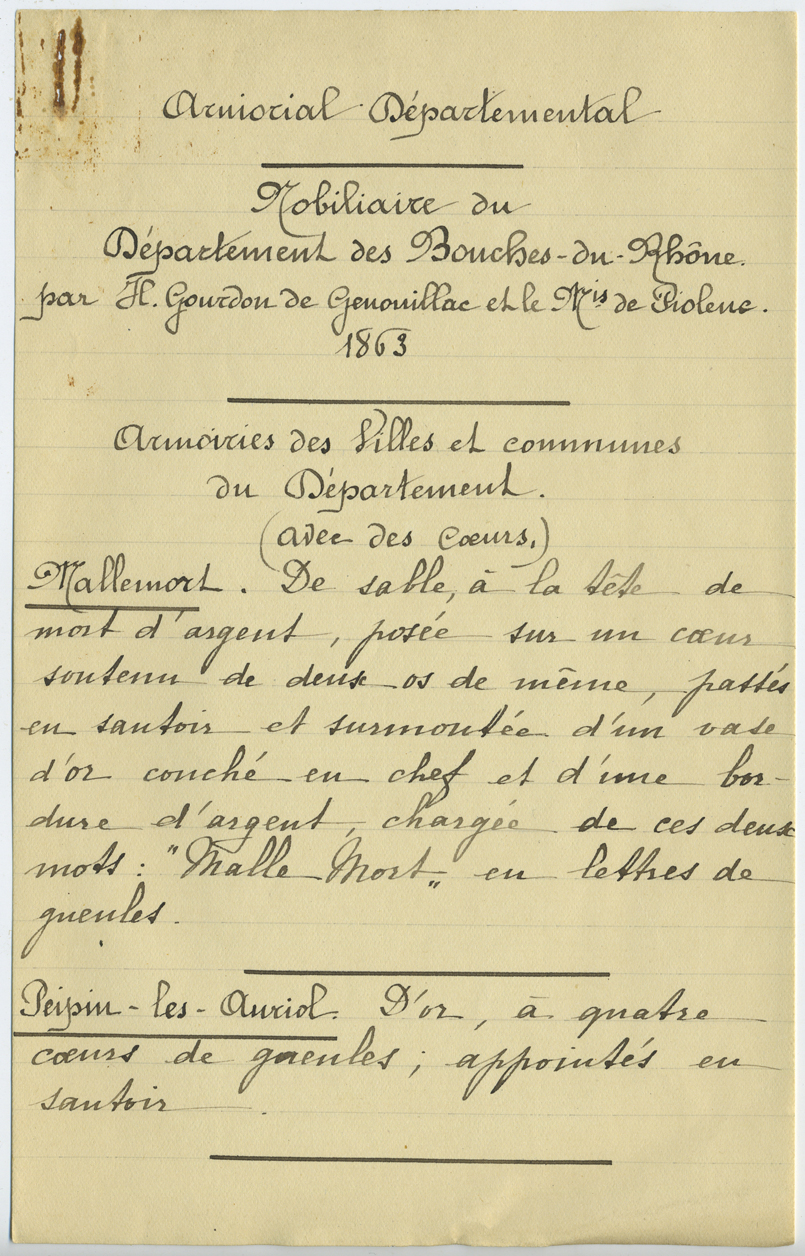 Armorial Départemental
Nobiliaire du
Département des Bouches-du-Rhône.
par H. Gourdon de Genouillac et le Mis de Piolenc.
1863
Armoiries des Villes et communes
du Département.
(avec des Cœurs.)
Mallemort. De sable, à la tête de
mort d'argent, posée sur un cœur
soutenu de deux os de même, passés
en sautoir et surmontée d'un vase
d'or couché en chef et d'une bor-
dure d'argent, chargée de ces deux
mots : "Malle Mort„ en lettres de
gueules.
Peipin-les-Auriol. D'or, à quatre
cœurs de gueules ; appointés en
sautoir.